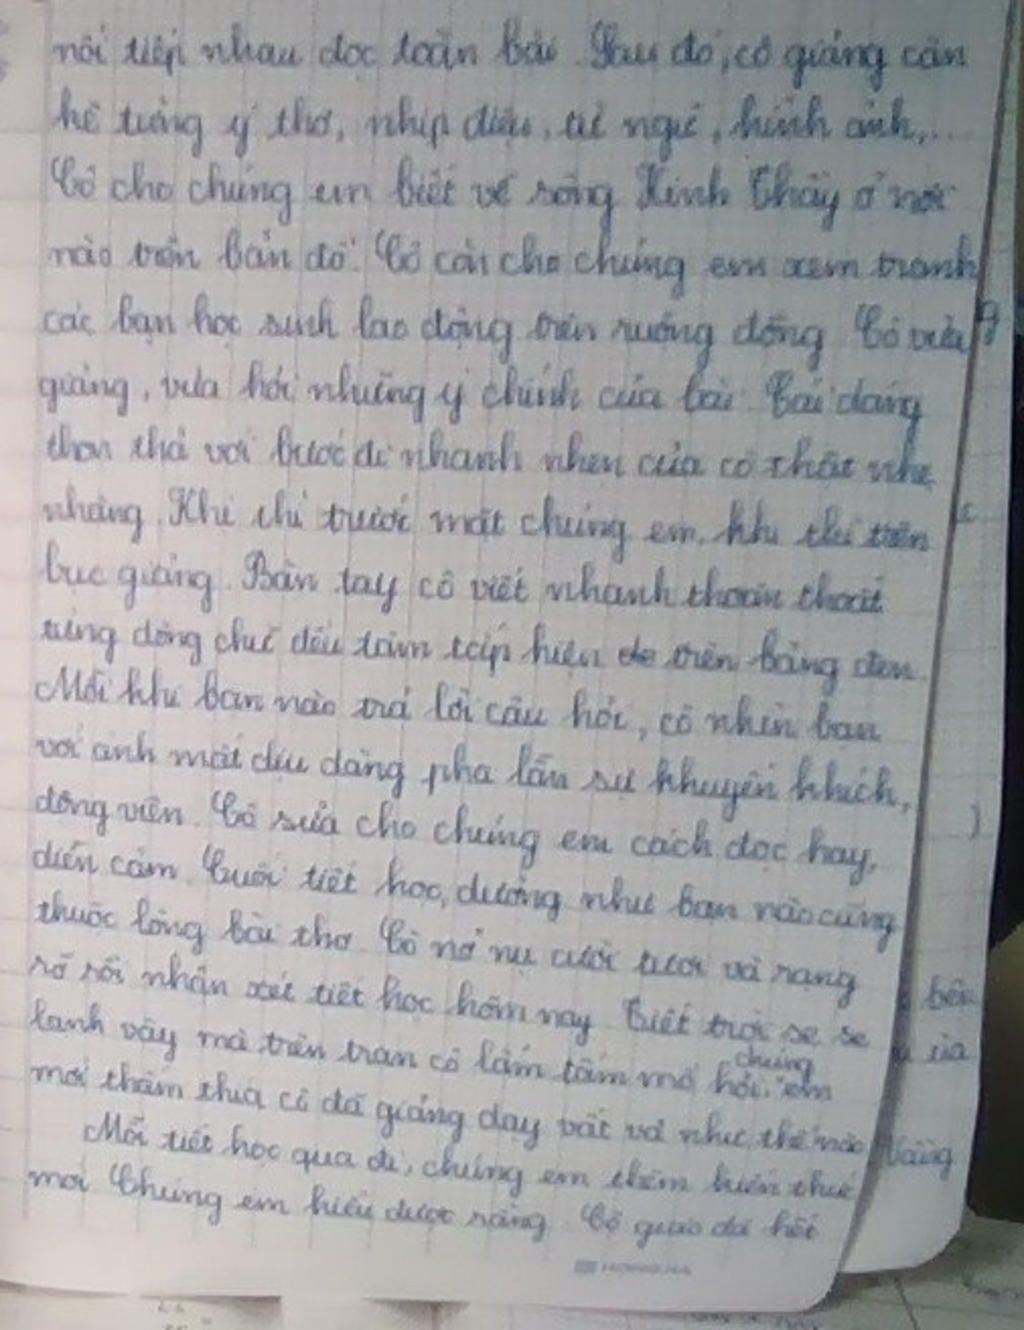 nối tiếp nhau đọc toàn bài. Sau đó, cô giảng cặn
kẽ từng ý thơ, nhịp điệu, từ ngữ, hình ảnh,...
Cô cho chúng em biết về sông Kinh Thầy ở nơi
nào trên bản đồ. Cô còn cho chúng em xem tranh
các bạn học sinh lao động trên ruộng đồng Cô vừa
giảng, vừa hỏi những ý chính của bài. Cái dáng
thon thả với bước đi nhanh nhẹn của cô thật nhẹ
nhàng. Khi thì trước mặt chúng em, khi thì trên
bục giảng. Bàn tay cô viết nhanh thoăn thoắt
từng dòng chữ đều tăm tắp hiện trên bảng đen.
Mỗi khi bạn nào trả lời câu hỏi, cô nhìn bạn
với ánh mắt dịu dàng pha lẫn sự khuyến khích,
động viên. Cô sửa cho chúng em cách đọc hay,
diễn cảm. Cuối tiết học, dường như bạn nào cũng
thuộc lòng bài thơ. Cô nở nụ cười tươi và rạng
rỡ rồi nhận xét tiết học hôm nay. Tiết trời se se
lạnh vậy mà trên trán cô lấm tấm mồ hôi. chúng em
mới thấm thía cô đã giảng dạy vất vả như thế nào
Mỗi tiết học qua đi, chúng em thêm kiến thức
mới Chúng em hiểu được rằng. Cô giáo đã hết
bên
của